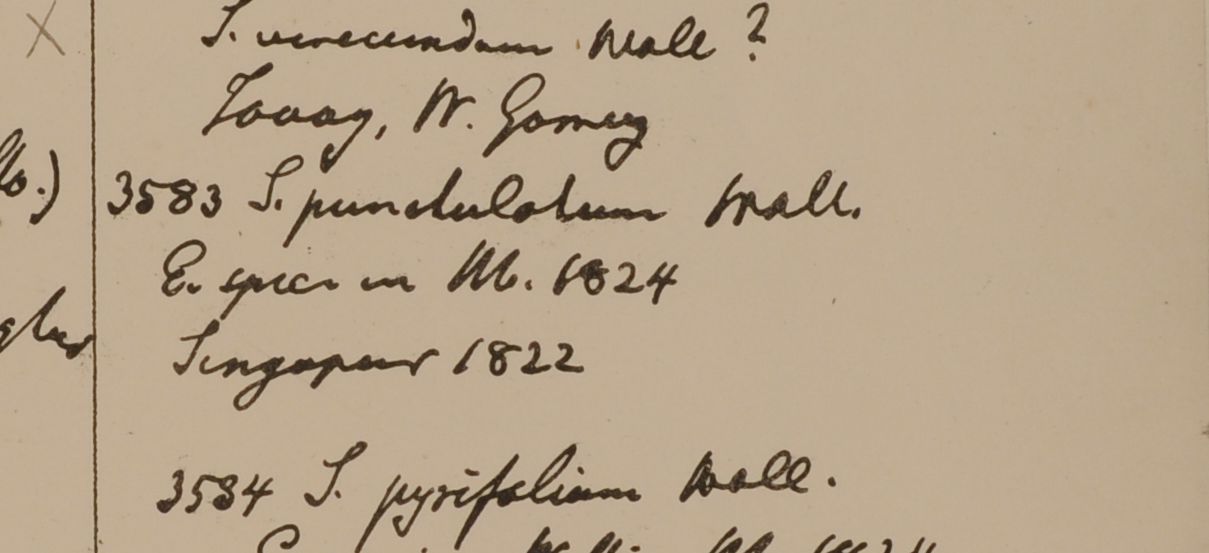 S. verecundum Wall ?
Tavoy, W. Gomez
lb.) 3583 S. punctulatum Wall.
E. specim Hb. 1824
Singapur 1822
3584 S. pyrifolium Wall.